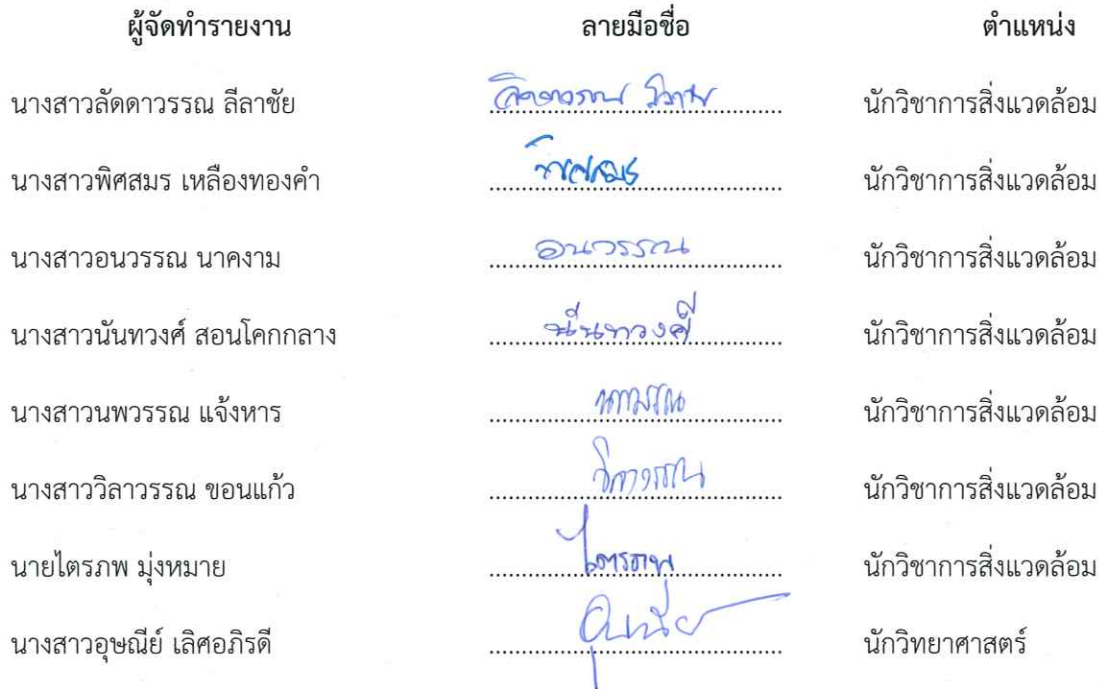 ผู้จัดทำรายงาน ลายมือชื่อ ตำแหน่ง
นางสาวลัดดาวรรณ ลีลาชัย ลัดดาวรรณ ลีลาชัย นักวิชาการสิ่งแวดล้อม
นางสาวพิศสมร เหลืองทองคำ พิศสมร นักวิชาการสิ่งแวดล้อม
นางสาวอนวรรณ นาคงาม อนวรรณ นักวิชาการสิ่งแวดล้อม
นางสาวนันทวงศ์ สอนโคกกลาง นันทวงศ์ นักวิชาการสิ่งแวดล้อม
นางสาวนพวรรณ แจ้งหาร นพวรรณ นักวิชาการสิ่งแวดล้อม
นางสาววิลาวรรณ ขอนแก้ว วิลาวรรณ นักวิชาการสิ่งแวดล้อม
นายไตรภพ มุ่งหมาย ไตรภพ นักวิชาการสิ่งแวดล้อม
นางสาวอุษณีย์ เลิศอภิรดี อุษณีย์ นักวิทยาศาสตร์